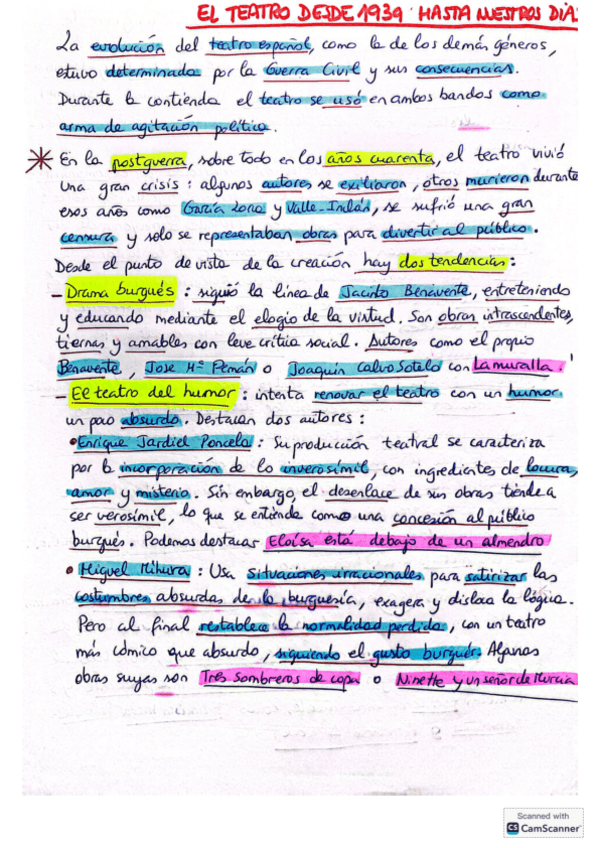 EL TEATRO DESDE 1939 HASTA NUESTROS DIA
La evolución del teatro español, como la de los demás géneros,
estuvo determinada por la Guerra Civil y sus consecuencias.
Durante la contienda el teatro se usó en ambos bandos como
arma de agitación política.
En la postguerra, sobre todo en los años cuarenta, el teatro vivió
una gran crisis: algunos autores se exiliaron, otros murieron durante
esos años como García Lorca y Valle-Inclán, se sufrió una gran
censura y solo se representaban obras para divertir al público.
Desde el punto de vista de la creación hay dos tendencias:
- Drama burgués: siguió la línea de Jacinto Benavente, entreteniendo
y educando mediante el elogio de la virtud. Son obras intrascendentes,
tiernas y amables con leve crítica social. Autores como el propio
Benavente, Jose Mª Pemán o Joaquín Calvo Sotelo con La muralla.
- El teatro del humor: intenta renovar el teatro con un humor
un poco absurdo. Destacan dos autores:
• Enrique Jardiel Poncela: Su producción teatral se caracteriza
por la incorporación de lo inverosímil, con ingredientes de locura,
amor y misterio. Sin embargo, el desenlace de sus obras tiende a
ser verosímil, lo que se entiende como una concesión al público
burgués. Podemos destacar Eloísa está debajo de un almendro
• Miguel Mihura: Usa situaciones irracionales para satirizar las
costumbres absurdas de la burguesía, exagera y disloca la lógica.
Pero al final restablece la normalidad perdida, con un teatro
más cómico que absurdo, siguiendo el gusto burgués. Algunas
obras suyas son Tres sombreros de copa o Ninette y un señor de Murcia
Scanned with
CS CamScanner